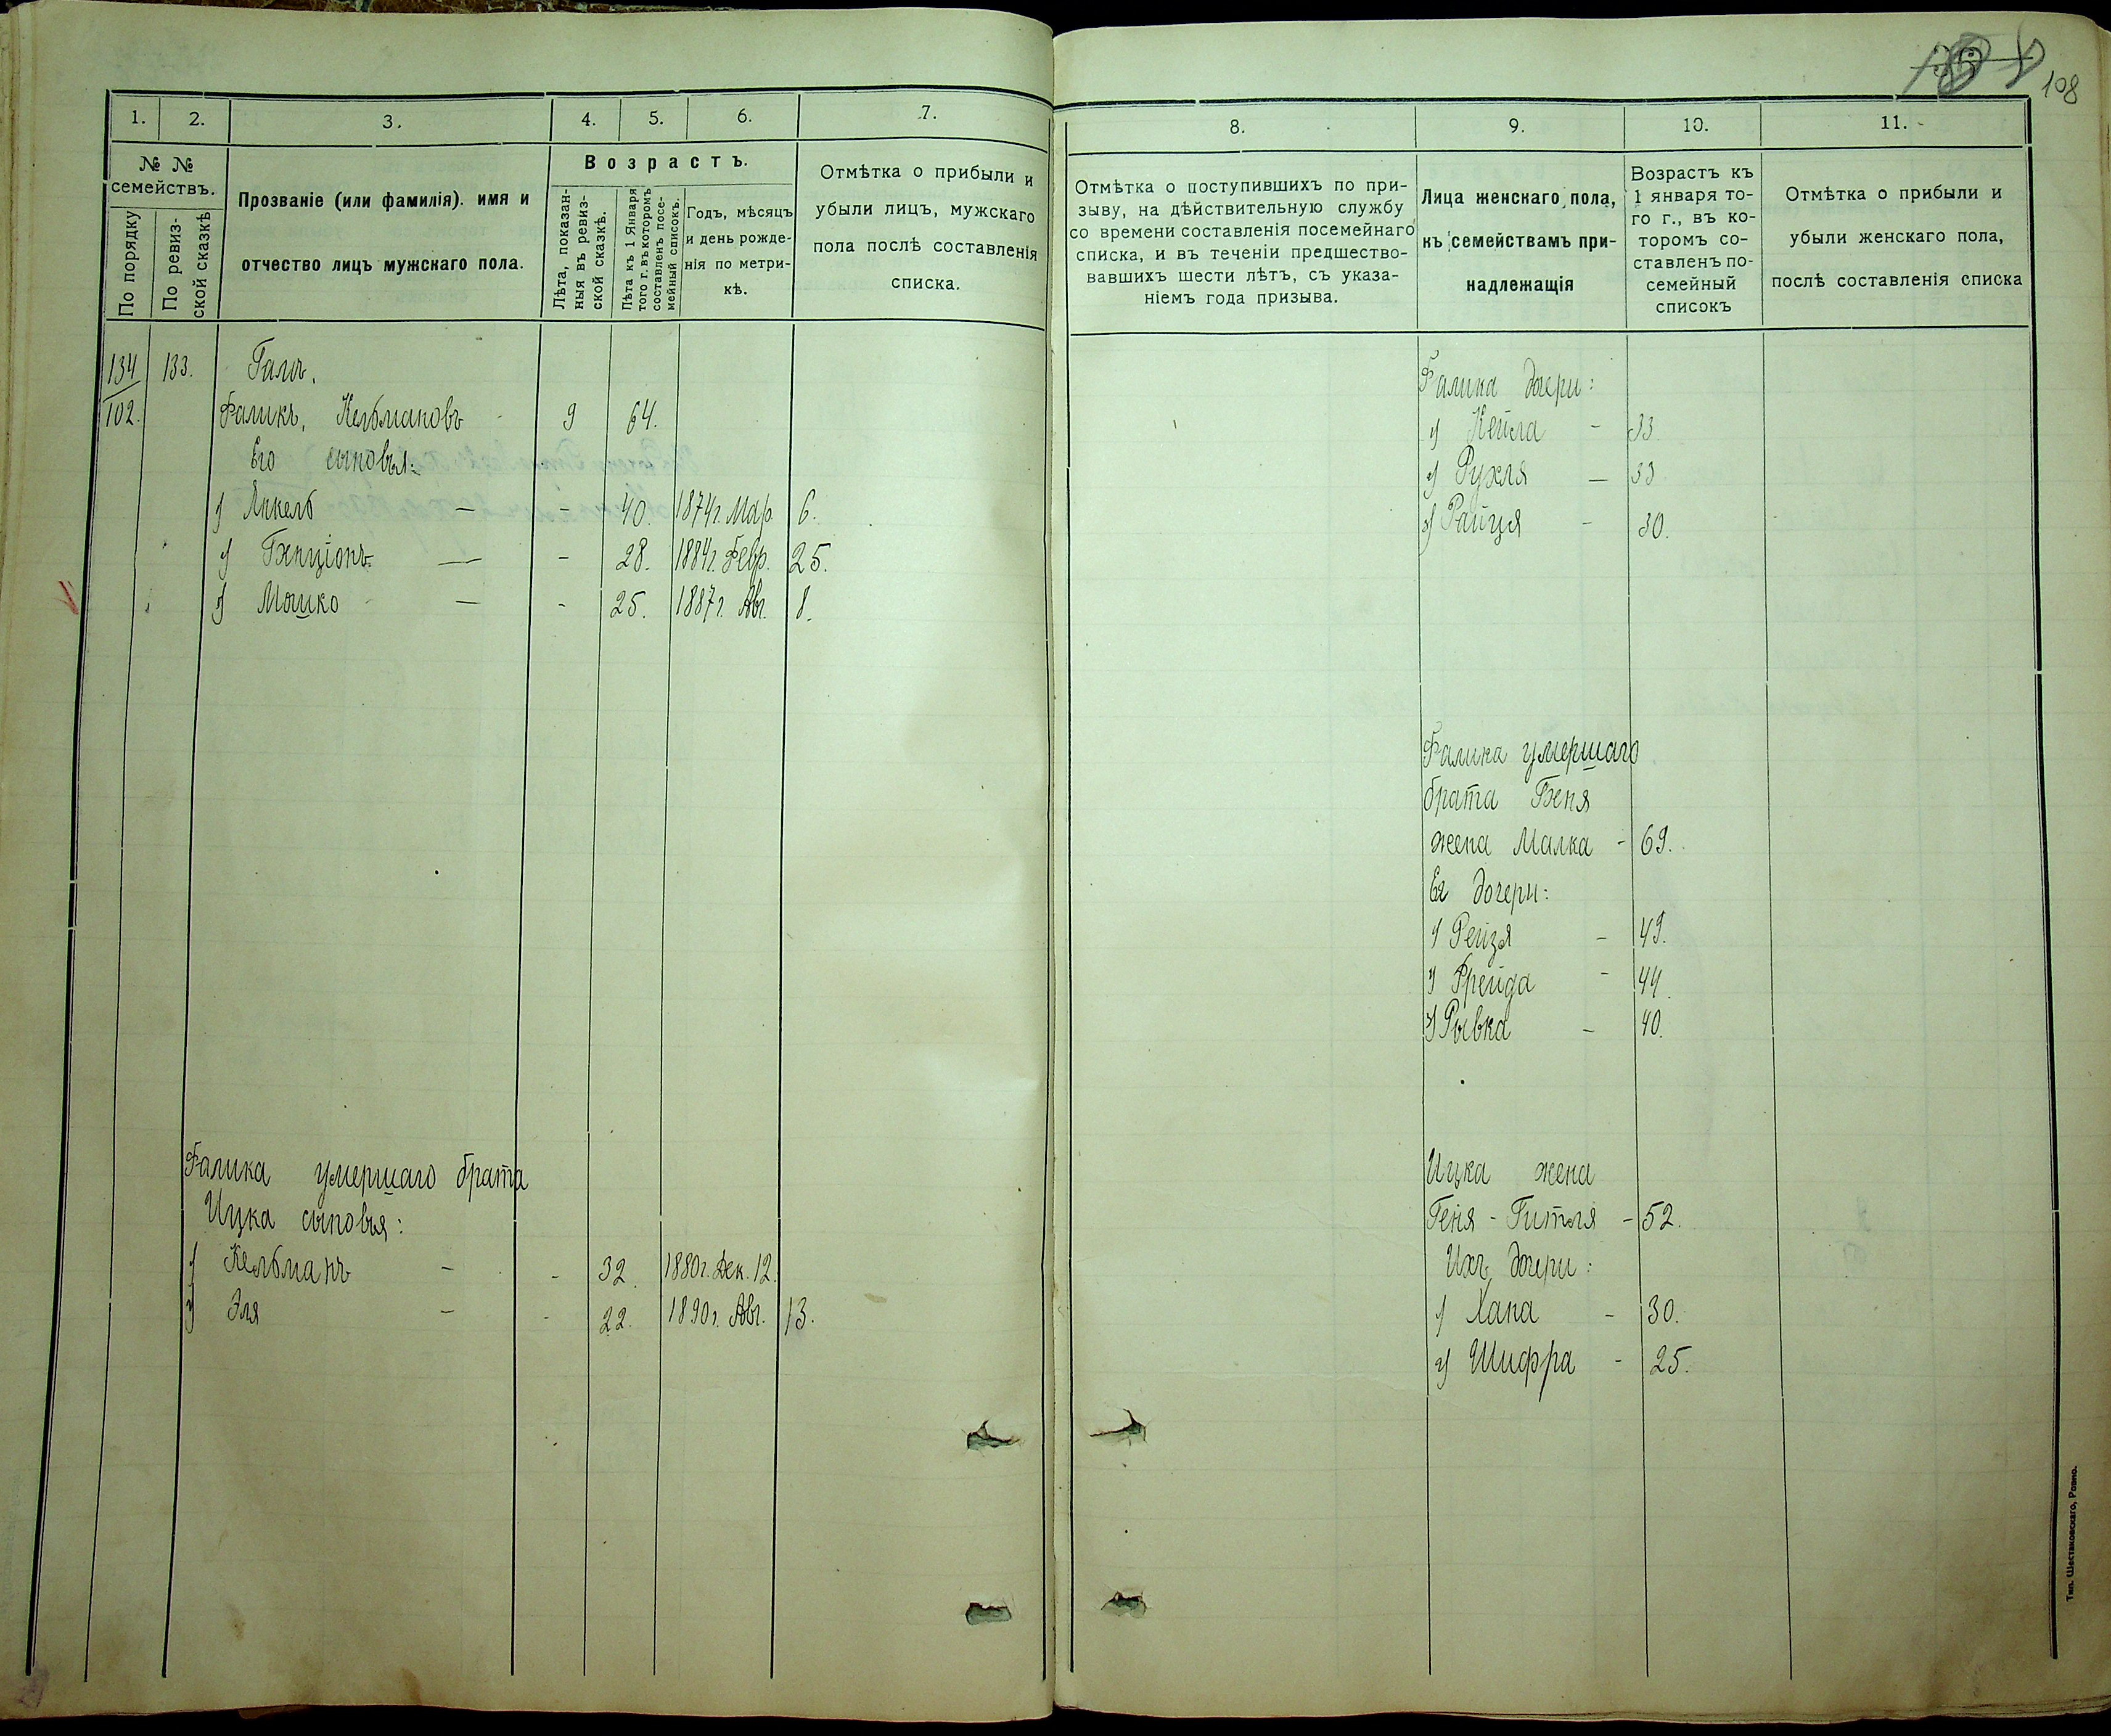 108
1.
2.
3.
4.
5.
6.
7.
№ №
семействъ.
По порядку
По ревиз-
ской сказкѣ
Прозваніе (или фамилія). имя и
отчество лицъ мужскаго пола.
Возрастъ.
Лѣта, показан-
ныя въ ревиз-
ской сказкѣ.
Лѣта къ 1 Января
того г. въ которомъ
составленъ посе-
мейный списокъ.
Годъ, мѣсяцъ
и день рожде-
нія по метри-
кѣ.
Отмѣтка о прибыли и
убыли лицъ, мужскаго
пола послѣ составленія
списка.
134 133.
102. Фаликъ, Кельмановъ 9 64.
Его сыновья:
1) Янкель — - 40. 1874 г. Мар. 6.
2) — - 28. 1884 г. Февр. 25.
3) Мошко — - 25. 1887 г. Авг. 8.
Фалика умершаго брата
Ицка сыновья:
1) Кельманъ - - 32. 1880 г. Дек. 12.
2) Эля - - 22. 1890 г. Авг. 13.
8.
9.
10.
11.
Отмѣтка о поступившихъ по при-
зыву, на дѣйствительную службу
со времени составленія посемейнаго
списка, и въ теченіи предшество-
вавшихъ шести лѣтъ, съ указа-
ніемъ года призыва.
Лица женскаго пола,
къ семействамъ при-
надлежащія
Возрастъ къ
1 января то-
го г., въ ко-
торомъ со-
ставленъ по-
семейный
списокъ
Отмѣтка о прибыли и
убыли женскаго пола,
послѣ составленія списка
Фалика дочери:
1) Кейла - 33.
2) Рухля — 33
3) Райця - 30.
Фалика умершаго
брата
жена Малка - 69.
Ея дочери:
1) Рейзя - 49.
2) Фрейда - 44.
3) Рывка - 40.
Ицка жена
Геня - Гитля - 52.
Ихъ дочери:
1) Хана - 30.
2) Шифра - 25.
Тип. Шестаковскаго, Ровно.